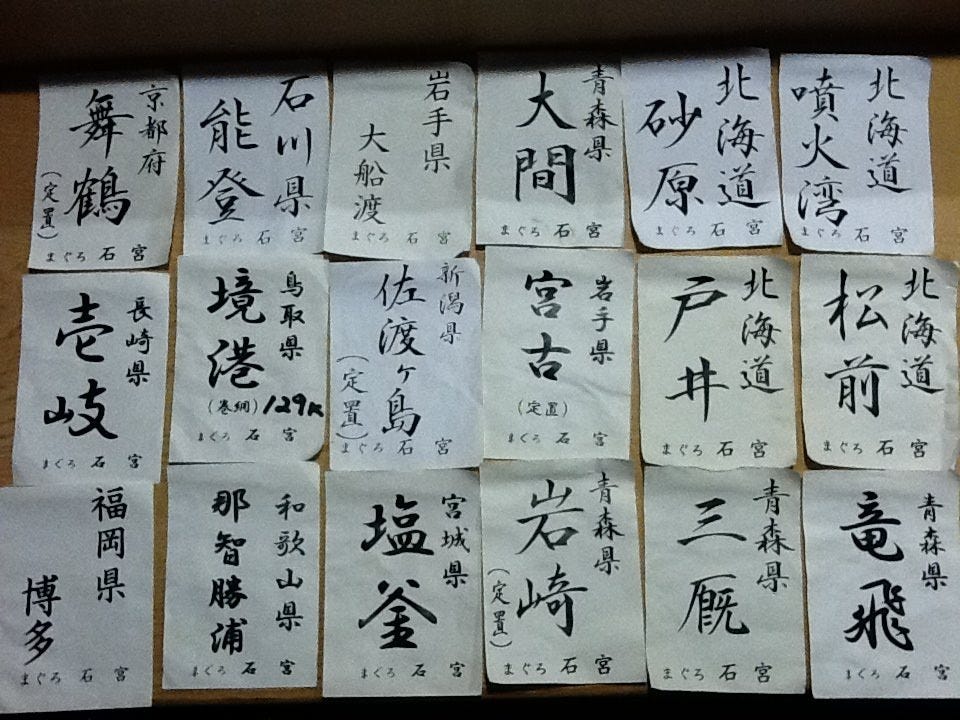 北海道
噴火湾
まぐろ 石宮
北海道
砂原
まぐろ 石宮
青森県
大間
まぐろ 石宮
岩手県
大船渡
まぐろ 石宮
石川県
能登
まぐろ 石宮
京都府
舞鶴
(定置)
まぐろ 石宮
北海道
松前
まぐろ 石宮
北海道
戸井
まぐろ 石宮
岩手県
宮古
(定置)
まぐろ 石宮
新潟県
佐渡ヶ島
(定置)
まぐろ 石宮
鳥取県
境港
(巻網) 129K
まぐろ 石宮
長崎県
壱岐
まぐろ 石宮
青森県
竜飛
まぐろ 石宮
青森県
三厩
まぐろ 石宮
青森県
岩崎
(定置)
まぐろ 石宮
宮城県
塩釜
まぐろ 石宮
和歌山県
那智勝浦
まぐろ 石宮
福岡県
博多
まぐろ 石宮